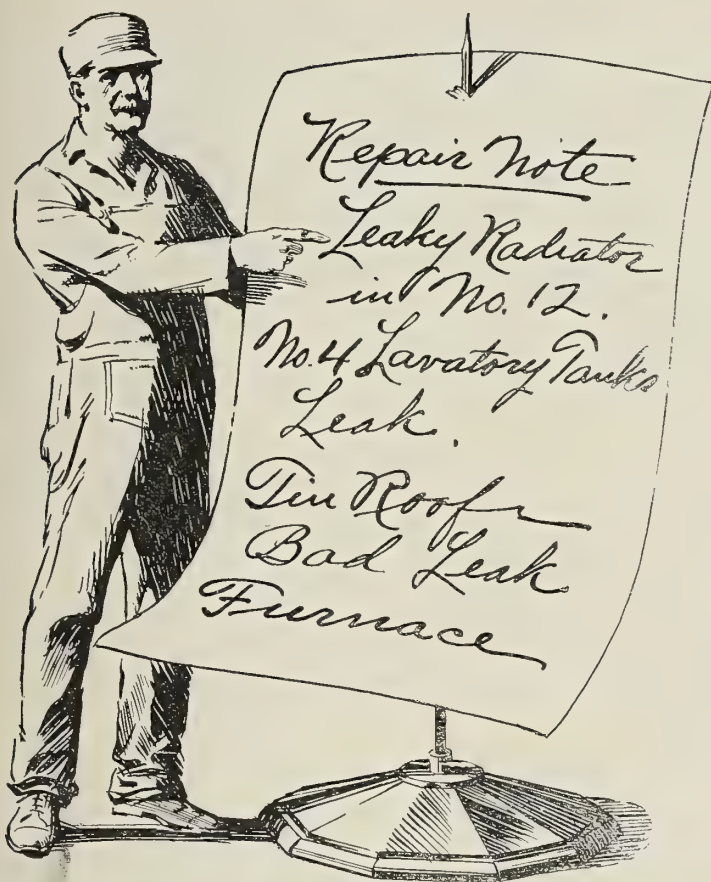 Repair Note
Leaky Radiator
in No. 12.
No. 4 Lavatory Tanks
Leak.
Tin Roof
Bad Leak
Furnace